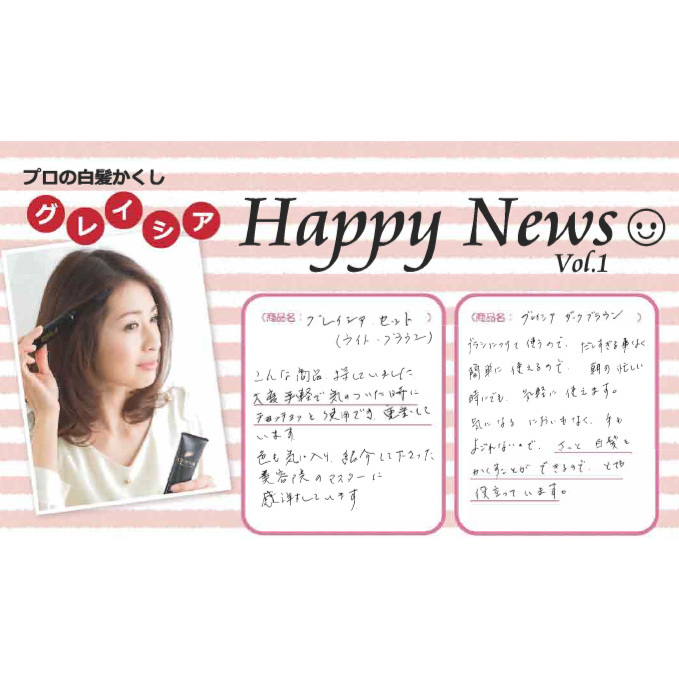 プロの白髪かくし
グレイシア
Happy News
Vol.1
(商品名: グレイシア セット )
(ライト・ブラウン)
こんな商品 探していました
大変手軽で気のついた時に
チョンチョンと使用でき、重宝して
います
色も気に入り、紹介して下さった
美容院のマスターに
感謝しています
(商品名: グレイシア ダークブラウン )
ブラシにつけて使うので、だしすぎる事なく
簡単に使えるので、朝の忙しい
時にでも、気軽に使えます。
気になる においもなく、手も
よごれないので、さっと 白髪を
かくすことが できるので、とても
役立っています。